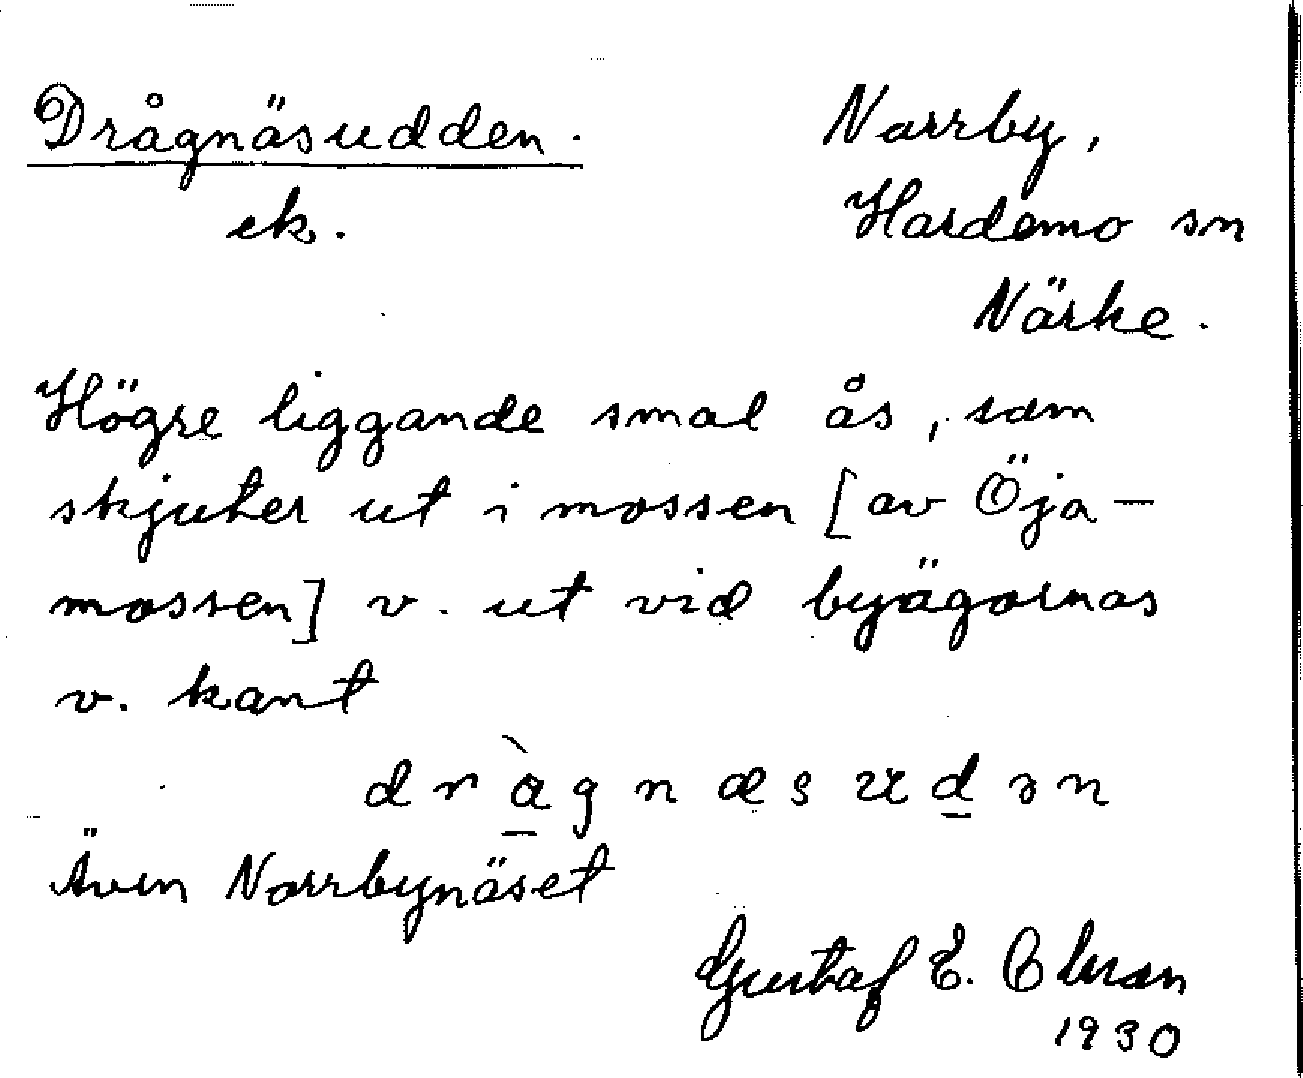 Drågnäsudden. Norrby,
ek. Hardemo sn
Närke.
Högre liggande smal ås, som
skjuter ut i mossen [av Öja-
mossen] v. ut vid byägornas
v. kant
dràgnæsudən
Även Norrbynäset
Gustaf E.
1930